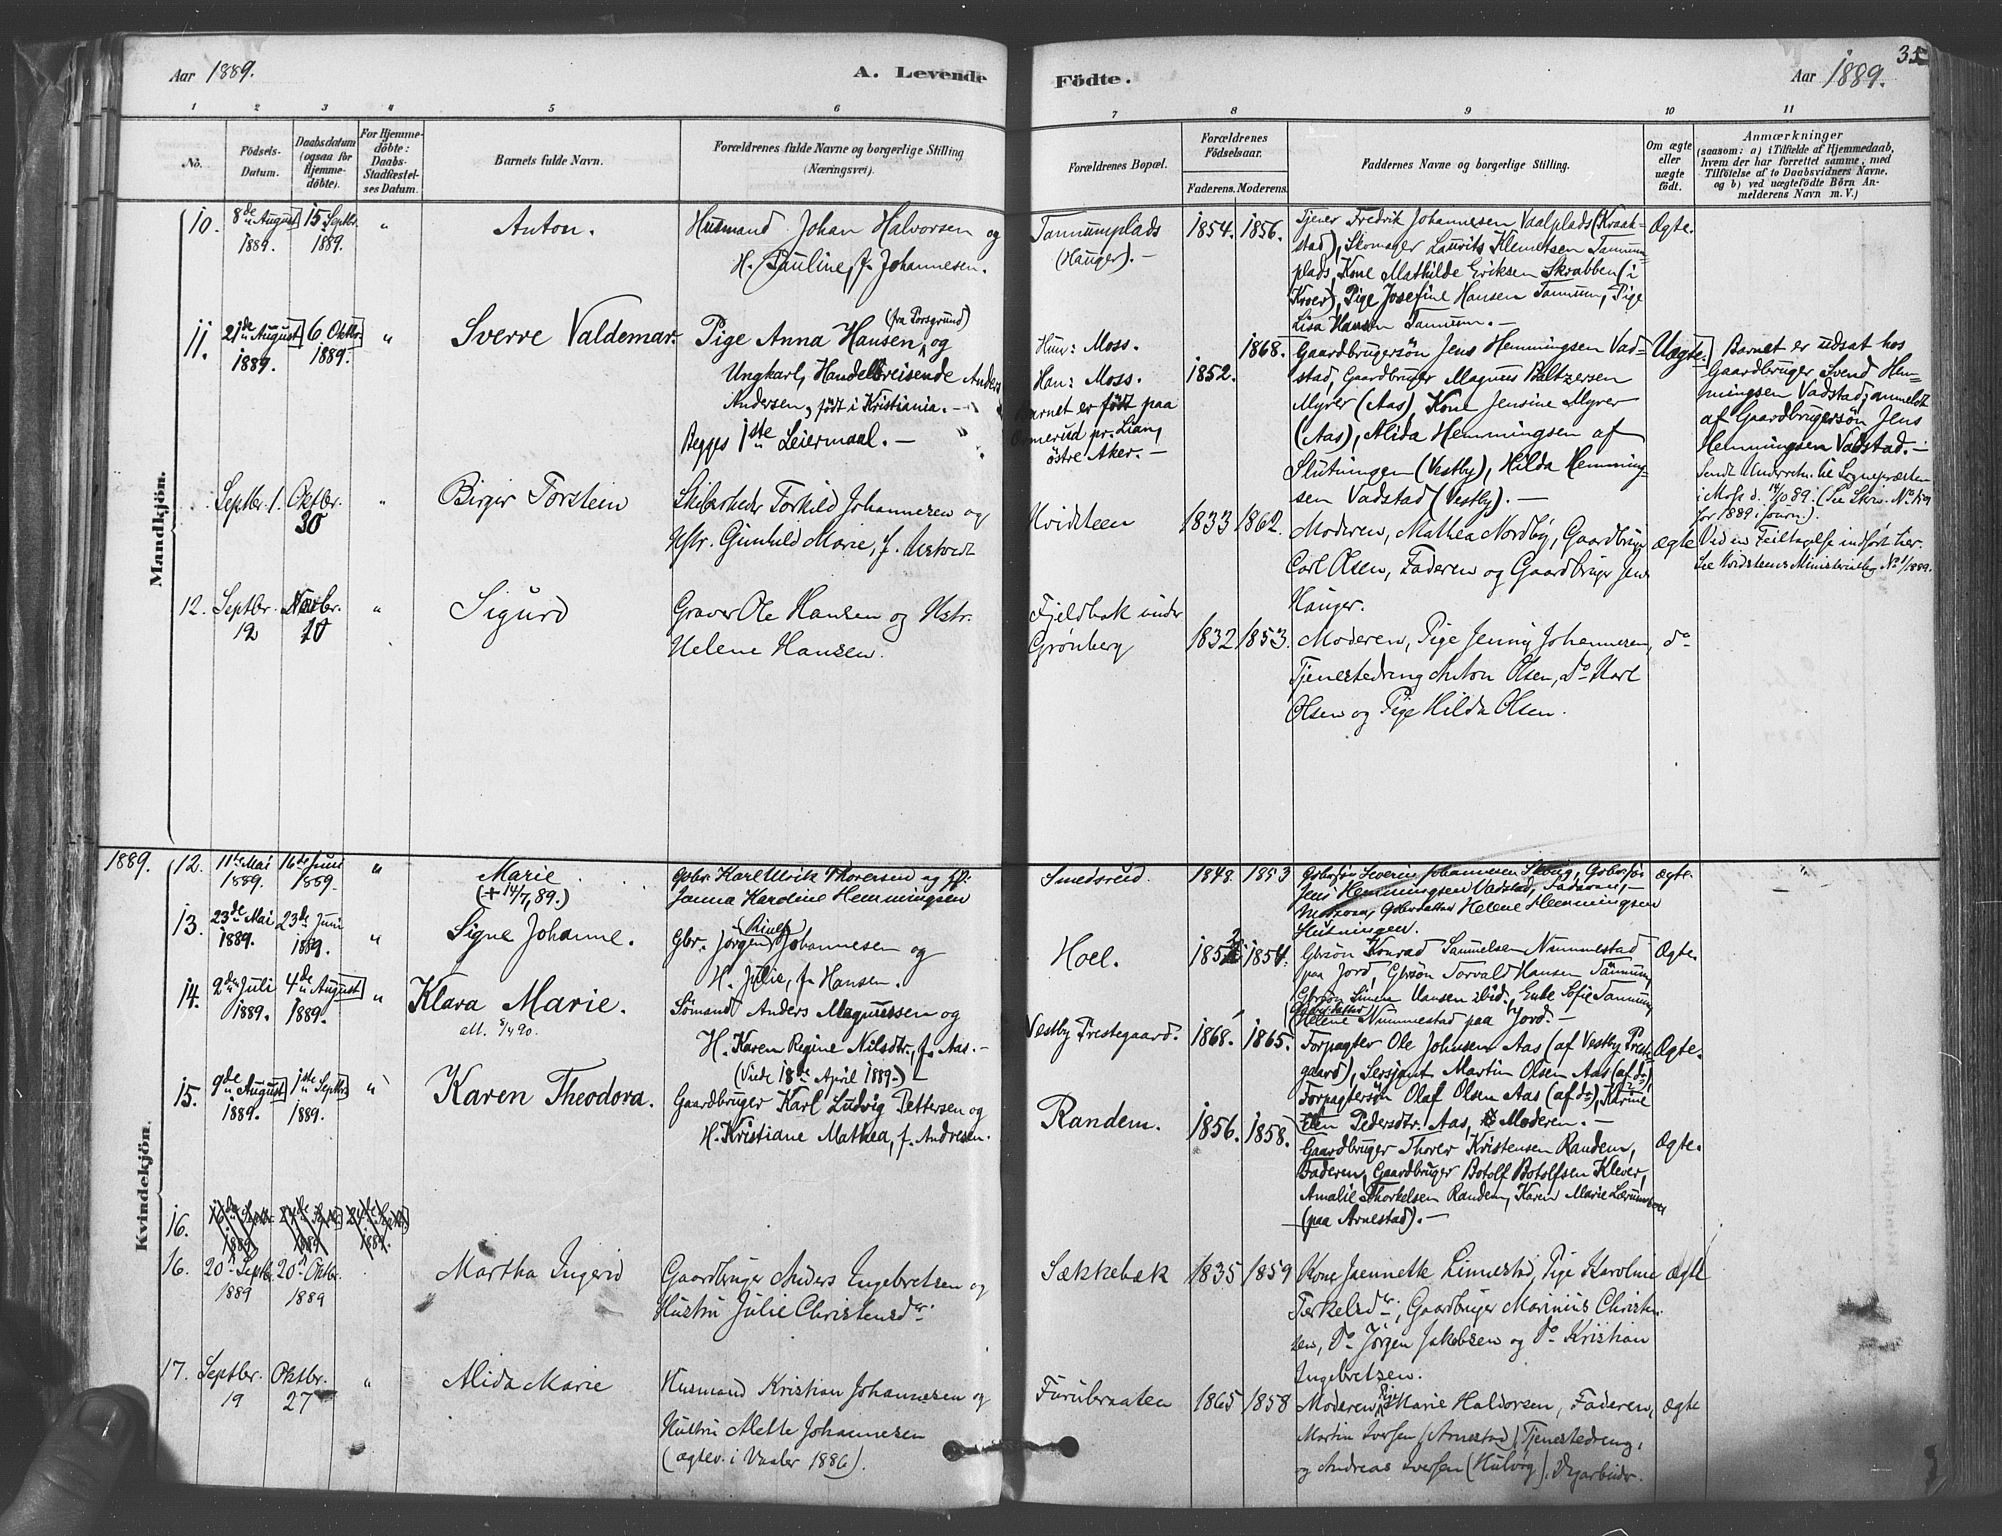 Aar 1889.
A. Levende
Födte.
Aar 1889.
35
1 2 3 4 5 6 7 8 9 10 11
No.
Födsels-Datum.
Daabsdatum (ogsaa for Hjemmedöbte).
For Hjemmedöbte: Daabs-Stadfæstelses Datum.
Barnets fulde Navn.
Forældrenes fulde Navne og borgerlige Stilling (Næringsvei).
Forældrenes Bopæl.
Forældrenes Födselsaar.
Faderens. Moderens.
Faddernes Navne og borgerlige Stilling.
Om ægte eller uægte födt.
Anmærkninger
(saasom: a) i Tilfælde af Hjemmedaab,
hvem der har forrettet samme, med
Tilföielse af to Daabsvidners Navne,
og b) ved uægtefödte Börn An-
melderens Navn m. V.)
Mandkjön.
10. 8de August 1889. 15 Septbr. 1889. "
Anton.
Husmand Johan Halvorsen og
H. Pauline, f. Johannesen.
Tannumplads
(Hauger). —
1854. 1856.
Tjener Fredrik Johannesen Vaalplads (Kraak-
stad), Skomager Laurits Klemetsen Tannum-
plads, Kone Mathilde Eriksen Skrabben (i
Kroer), Pige Josefine Hansen Tannum, Pige
Lisa Hansen Tannum. —
Ægte.
11. 21de August 1889. 6 Oktbr. 1889. "
Sverre Valdemar.
(fra Porsgrund)
Pige Anna Hansen, og
Ungkarl, Handelsreisende Anders
Andersen, født i Kristiania. —
Begges 1ste Leiermaal. —
Hun: Moss.
Han: Moss.
Barnet er født paa
Ormerud pr. Lian,
östre Aker. —
1852. 1868.
Gaardbrugersön Jens Hemmingsen Vad-
stad, Gaardbruger Magnus Baltzersen
Myrer (Aas), Kone Jensine Myrer
(Aas), Alida Hemmingsen af
Slutningen (Vestby), Hilda Hemming-
sen Vadstad (Vestby). —
Uægte.
Barnet er udsat hos
Gaardbruger Svend Hem-
mingsen Vadstad; anmeldt
af Gaardbrugersøn Jens
Hemmingsen Vadstad. —
Sendt Underretn. til Sognepræsten
i Moss d. 14/10 89. (Se Skriv. No
for 1889 i Journ.)
Septbr. 1. Oktbr. 30 "
Birger Torstein
Skibsreder Torkild Johannesen og
Hstr. Gunhild Marie, f. Ustvedt
Hvidsteen
1833 1862.
Moderen, Mathea Nordby, Gaardbruger
Carl Olsen, Faderen og Gaardbruger Jens
Hauger.
ægte
Ved en Feiltagelse indført her.
Se Hvidsteens Ministerialbog No 1/1889.
12. Septbr. 12 Novbr. 10 "
Sigurd
Graver Ole Hansen og Hstr.
Helene Hansen.
Fjeldbak under
Grønberg
1832 1853.
Moderen, Pige Jenny Johannesen,
Tjenestedreng Anton Olsen, Do Karl
Olsen og Pige Hilda Olsen.
do
Kvindekjön.
1889. 12. 11te Mai 1889. 16de Juni 1889. "
Marie
(+ 14/7 89.)
Gsbr. Karl Ulrik Thoresen og H.
Janna Karoline Hemmingsen
Smedsrud
1848. 1853
Gsbrsøn Severin Johannesen Skoug, Gsbrsøn
Jens Hemmingsen Vadstad, Faderen, —
Moderen, Gsbrdatter Helene Hemmingsen
Slutningen.
ægte.
13. 23de Mai 1889. 23de Juni 1889. "
Signe Johanne.
Gbr. Jörgen Johannesen og
H. Julie, f. Hansen.
Hoel.
1854.
Gbrsön Konrad Samuelsen Nummestad
paa Jord, Gbrsön Torvald Hansen Tannum,
Gbrsön Simen Hansen ibid., Enke Sofie Tannum,
(Gbrdatter)
Helene Nummestad paa Jord. —
Ægte.
14. 2de Juli 1889. 4de August 1889. "
Klara Marie.
att. 8/4 90.
Sömand Anders Magnussen og
H. Karen Regine Nilsdtr., f. Aas. —
(Viede 18de April 1889.) —
Vestby Prestegaard.
1868. 1865.
Forpagter Ole Johnsen Aas (af Vestby Preste-
gaard), Sersjant Martin Olsen Aas (af do),
Forpagtersön Olaf Olsen Aas (af do), Karine
Elen Pedersdtr. Aas, Moderen. —
Ægte.
15. 9de August 1889. 1ste Septbr. 1889. "
Karen Theodora.
Gaardbruger Karl Ludvig Pettersen og
H. Kristiane Mathea, f. Andresen.
Randem.
1856. 1858.
Gaardbruger Thorer Kristensen Randem,
Faderen, Gaardbruger Botolf Botolfsen Klever,
Amalie Thorkelsen Randem, Karen Marie
(paa Arnestad). —
Ægte.
16.
16. 20de Septbr. 1889 20de Oktbr. 1889
Martha Ingerid
Gaardbruger Anders Ingebretsen og
Hustru Julie Christensdr.
Sækkebæk
1835 1859
Kone Jaennette Linnestad, Pige Karoline
Terkelsdr., Gaardbruger Marinius Christen-
sen, Do Jörgen Jakobsen og Do Kristian
Ingebretsen.
Ægte
17. Septbr. 19 Oktbr. 27 "
Alida Marie
Husmand Kristian Johannesen og
Hustru Alette Johannesen
(ægtev. i Vaaler 1886).
Furubraaten
1865 1858
Moderen, Pige Marie Haldorsen, Faderen,
Martin Iversen (Arnestad), Tjenestedreng,
og Andreas Iversen (Hulvog),
ægte